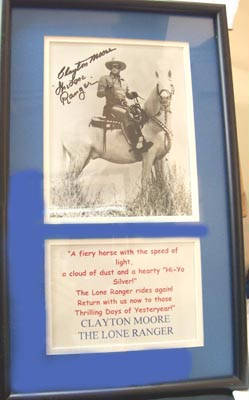 Clayton Moore
"The Lone
Ranger"
"A fiery horse with the speed of
light,
a cloud of dust and a hearty "Hi-Yo
Silver!"
The Lone Ranger rides again!
Return with us now to those
Thrilling Days of Yesteryear!"
CLAYTON MOORE
THE LONE RANGER